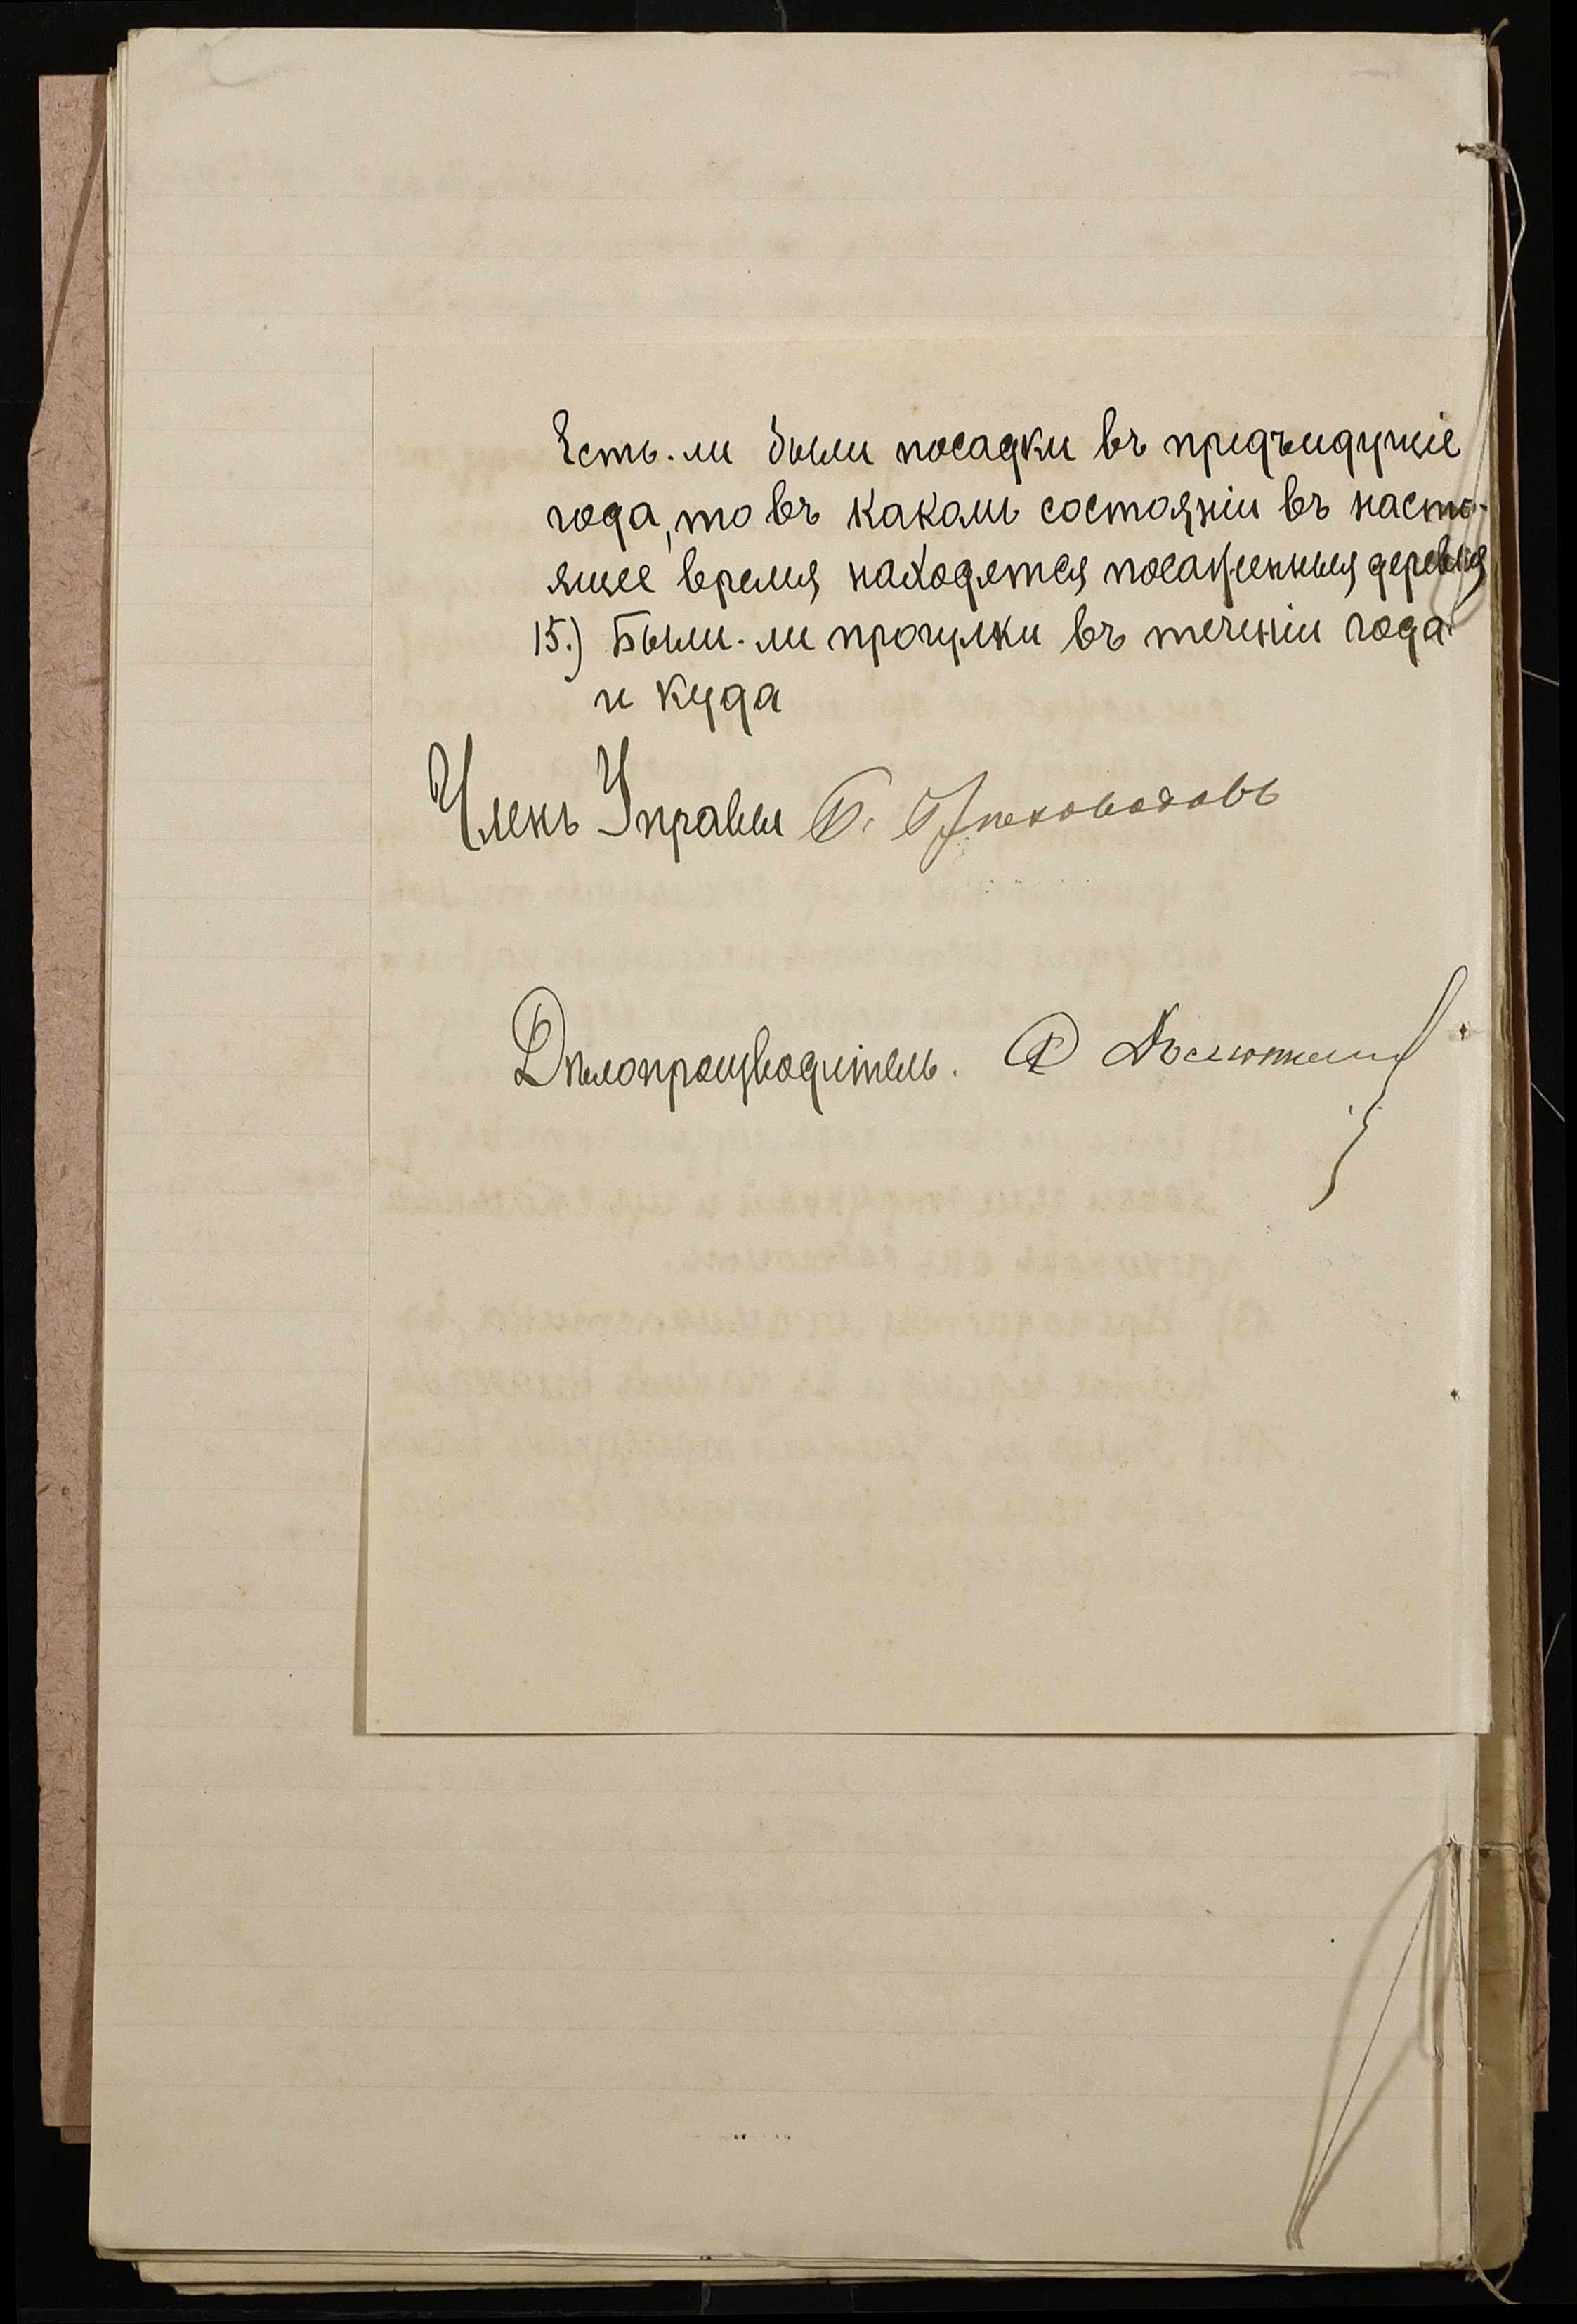 Есть-ли были посадки въ предъидущіе
года, то въ какомъ состояніи въ насто-
ящее время находятся посаженныя деревья
15.) Были-ли прогулки въ теченіи года
и куда
Членъ Управы
Дѣлопроизводитель.